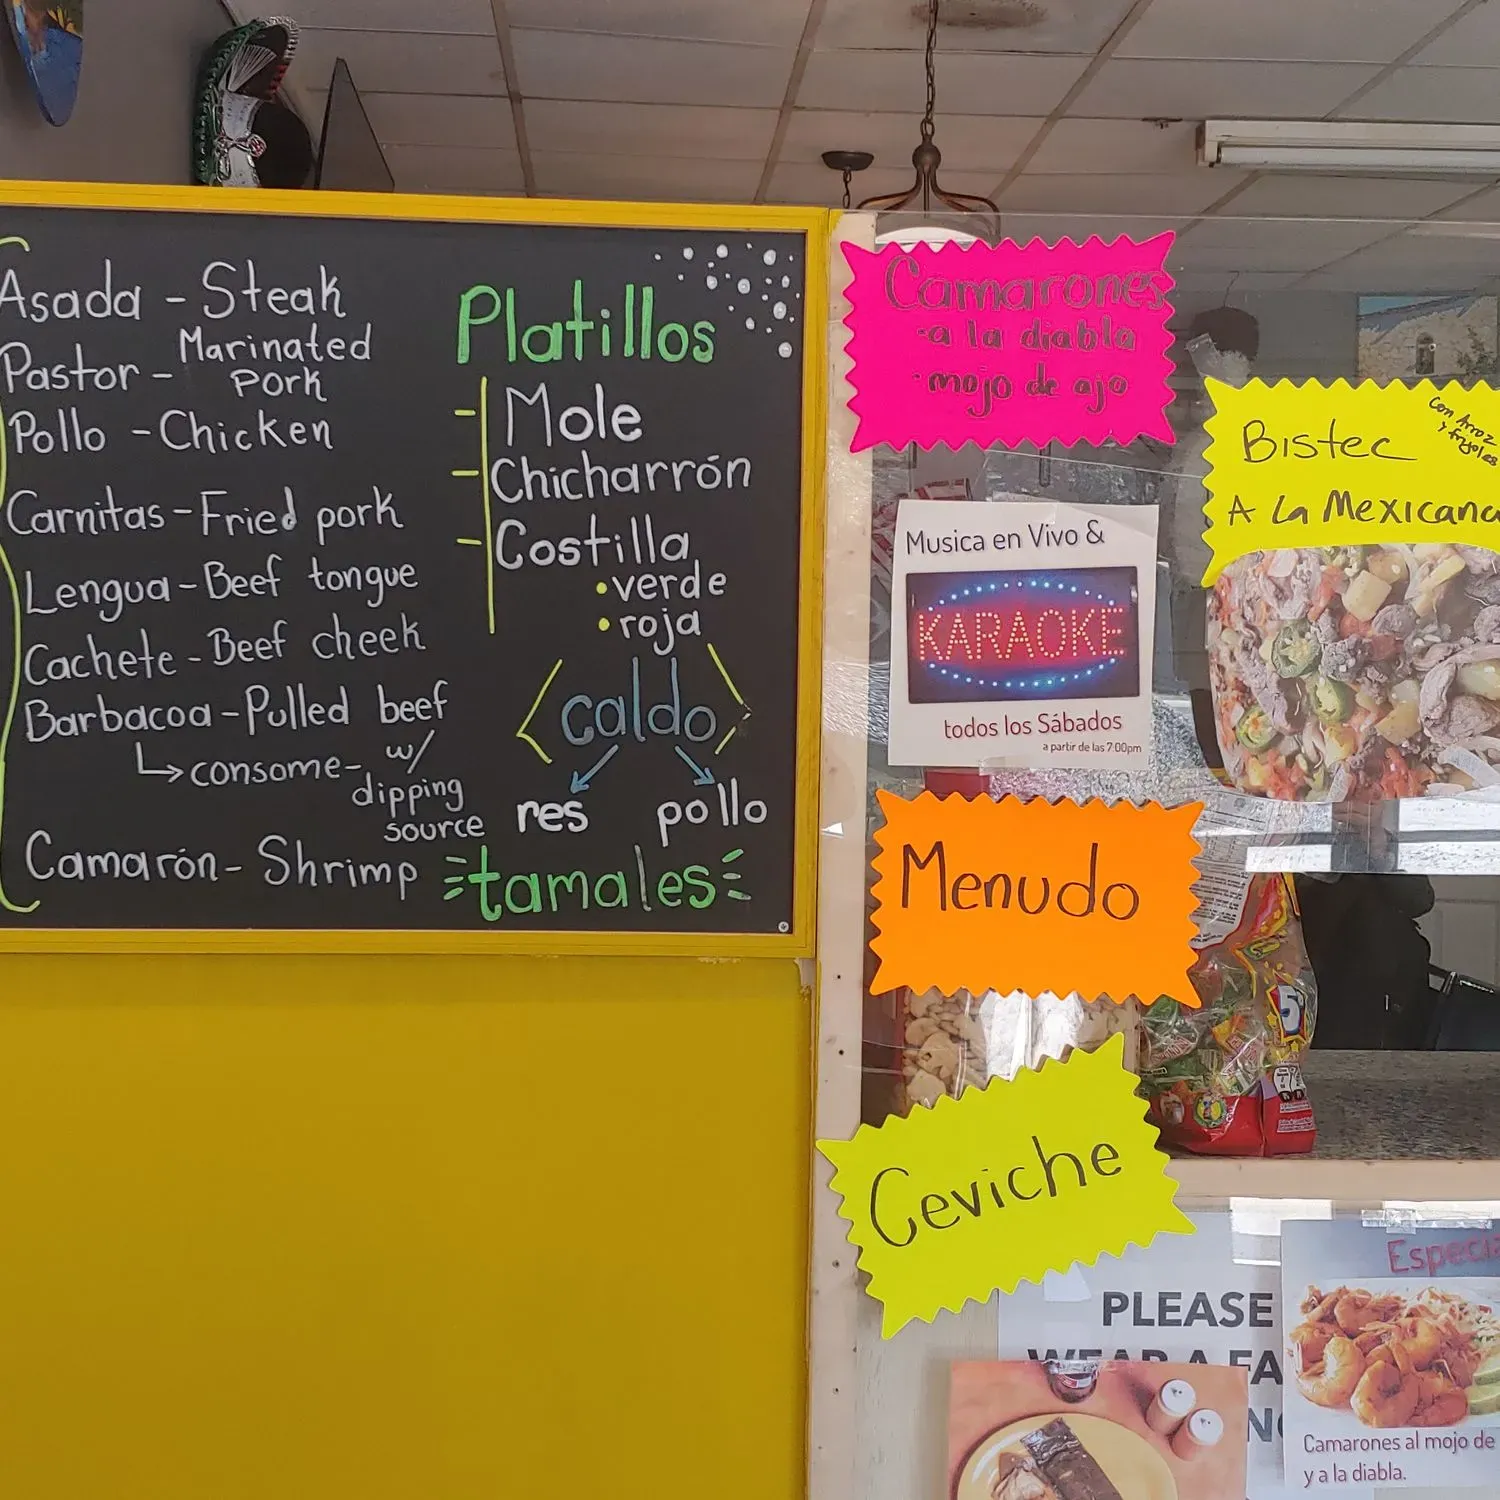 Asada - Steak
Pastor - Marinated
Pork
Pollo - Chicken
Carnitas - Fried pork
Lengua - Beef tongue
Cachete - Beef cheek
Barbacoa - Pulled beef
↳ consome - w/
dipping
source
Camarón - Shrimp
Platillos
- Mole
- Chicharrón
- Costilla
• verde
• roja
caldo
res pollo
tamales
Camarones
-a la diabla
·mojo de ajo
Bistec
con Arroz
y frijoles
A La Mexicana
Musica en Vivo &
KARAOKE
todos los Sábados
a partir de las 7:00pm
Menudo
Ceviche
PLEASE
WEAR A FA
Especia
Camarones al mojo de
y a la diabla.